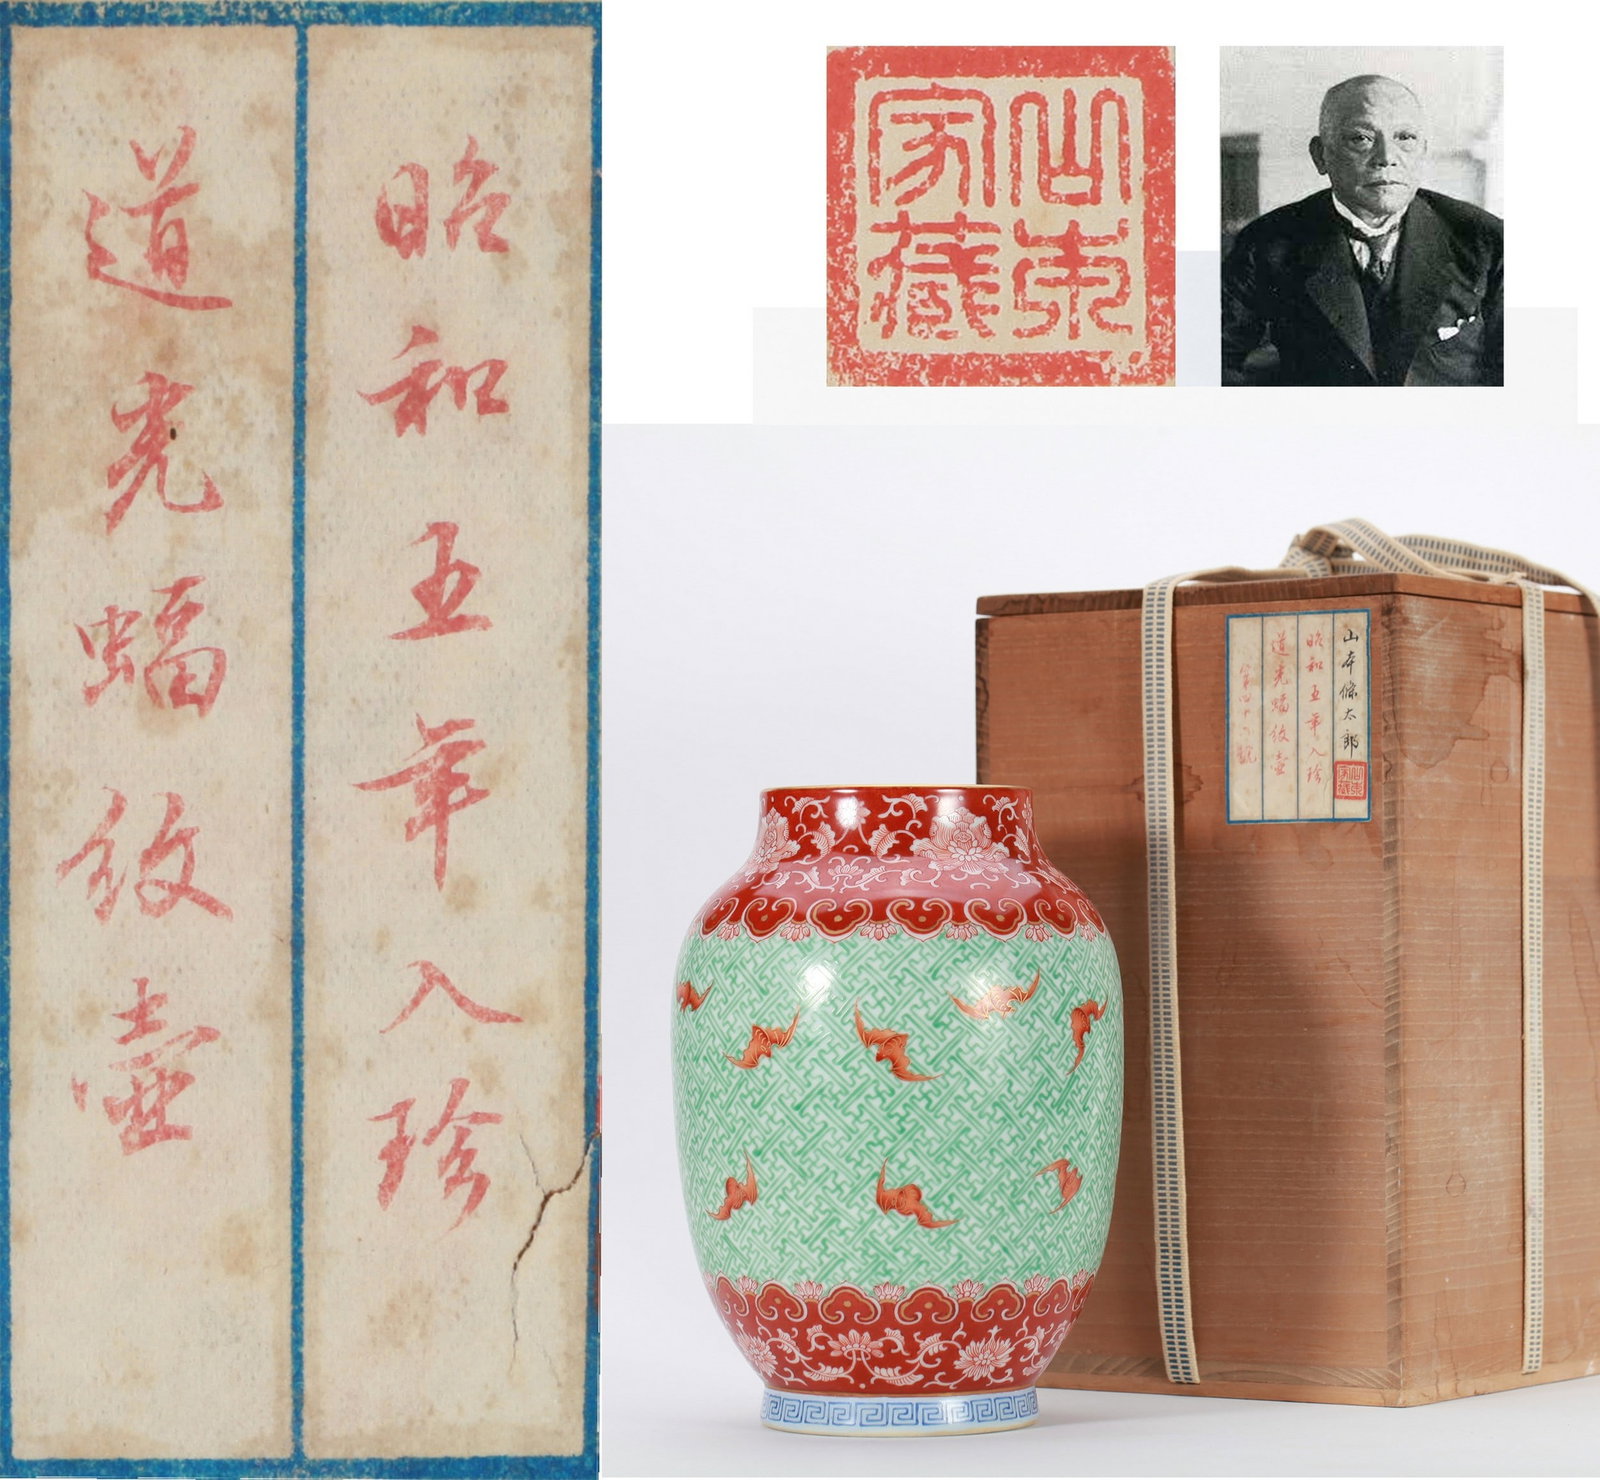 昭和五年入珍
道光蝠紋壺
山本家藏
山本條太郎
昭和五年入珍
道光蝠紋壺
第四十號